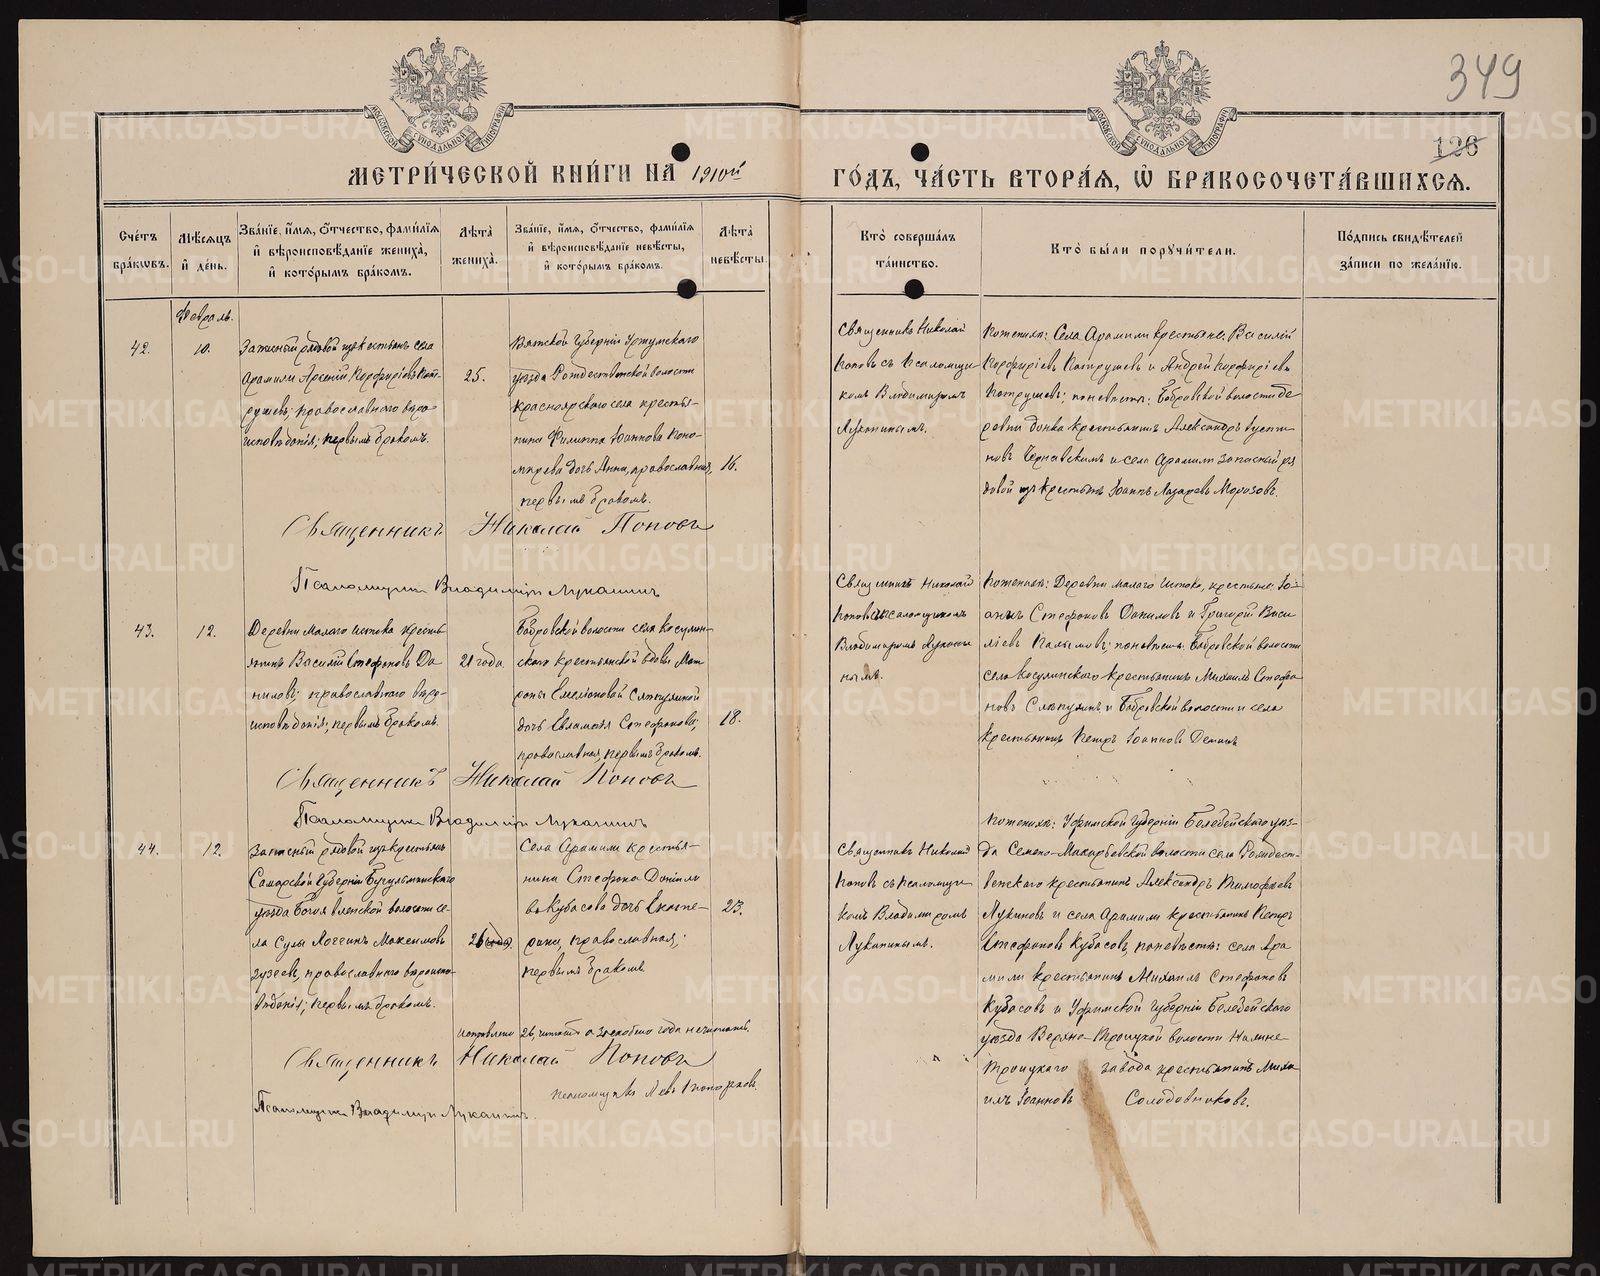 349
126
МОСКОВСКОЙ СѴНОДАЛЬНОЙ ТИПОГРАФІИ
МОСКОВСКОЙ СѴНОДАЛЬНОЙ ТИПОГРАФІИ
МЕТРИ́ЧЕСКОЙ КНИ́ГИ НА 1910й
ГО́ДЪ, ЧА́СТЬ ВТОРА́Я, Ѽ БРАКОСОЧЕТА́ВШИХСЯ.
Сче́тъ бра́кѡвъ.
Мѣ́сяцъ и҆ де́нь.
Зва́нїе, и҆́мя, ѻ҆́тчество, фами́лїя и҆ вѣроисповѣ́данїе жениха̀, и҆ кото́рымъ бра́комъ.
Лѣ́та жениха̀.
Зва́нїе, и҆́мя, ѻ҆́тчество, фами́лїя и҆ вѣроисповѣ́данїе невѣ́сты, и҆ кото́рымъ бра́комъ.
Лѣ́та невѣ́сты.
Кто̀ соверша́лъ та́инство.
Кто̀ бы́ли поручи́тели.
По́дпись свидѣ́телей за́писи по жела́нїю.
Февраль.
42.
10.
Запасный рядовой изъ крестьянъ села
Арамили Арсеній Порфиріевъ Кот-
рушевъ; православнаго вѣро-
исповѣданія; первымъ бракомъ.
25.
Вятской губерніи Уржумскаго
уѣзда Рождественской волости
Красноярскаго села крестья-
нина Филиппа Іоаннова Поно-
марева дочь Анна, православная,
первымъ бракомъ.
16.
Священникъ Николай
Поповъ съ псаломщи-
комъ Владимиромъ
Лукинымъ.
По женихѣ: Села Арамили крестьяне: Василій
Порфиріевъ Котрушевъ и Андрей Порфиріевъ
Котрушевъ; по невѣстѣ: Бобровской волости де-
ревни крестьянинъ Александръ
новъ Чернавскимъ и села Арамили запасный ря-
довой изъ крестьянъ Іоаннъ Лазаревъ Морозовъ.
Священникъ Николай Поповъ
Псаломщикъ Владимиръ Лукинъ
43.
12.
Деревни Малаго Истока кресть-
янинъ Василій Стефановъ Да-
ниловъ; православнаго вѣро-
исповѣданія; первымъ бракомъ.
21 года
Бобровской волости села Косулин-
скаго крестьянской вдовы Мат-
роны Емеліановой Сляпуриной
дочь Евлампія Стефанова,
православная, первымъ бракомъ.
18.
Священникъ Николай
Поповъ съ псаломщикомъ
Владимиромъ Лукины-
нымъ.
По женихѣ: Деревни Малаго Истока, крестьяне: Іо-
аннъ Стефановъ Даниловъ и Григорій Васи-
ліевъ; по невѣстѣ: Бобровской волости
села Косулинскаго крестьянинъ Михаилъ Стефа-
новъ и Бобровской волости и села
крестьянинъ Петръ Іоанновъ Деминъ.
Священникъ Николай Поповъ
Псаломщикъ Владимиръ Лукинъ
44.
12.
Запасный рядовой изъ крестьянъ
Самарской губерніи Бугульминскаго
уѣзда Богоявленской волости се-
ла Сулы Логгинъ Максимовъ
Гузеевъ, православнаго вѣроиспо-
вѣданія; первымъ бракомъ.
26
Села Арамили кресть-
янина Стефана Даніило-
ва Кубасова дочь Екате-
рина, православная;
первымъ бракомъ.
23.
Священникъ Николай
Поповъ съ псаломщи-
комъ Владимиромъ
Лукинымъ.
По женихѣ: Уфимской губерніи Белебейскаго уѣз-
да Семено-Макарьевской волости села Рождест-
венскаго крестьянинъ Александръ Тимофеевъ
Лукиновъ и села Арамили крестьянинъ Петръ
Стефановъ Кубасовъ, по невѣстѣ: села Ара-
мили крестьянинъ Михаилъ Стефановъ
Кубасовъ и Уфимской губерніи Белебейскаго
уѣзда Верхне-Троицкой волости Нижне-
Троицкаго завода крестьянинъ Миха-
илъ Іоанновъ Солодовниковъ.
исправлено 26, читать а года не читать.
Священникъ Николай Поповъ
псаломщикъ Левъ Пономаревъ
Псаломщикъ Владимиръ Лукинъ.
METRIKI.GASO-URAL.RU